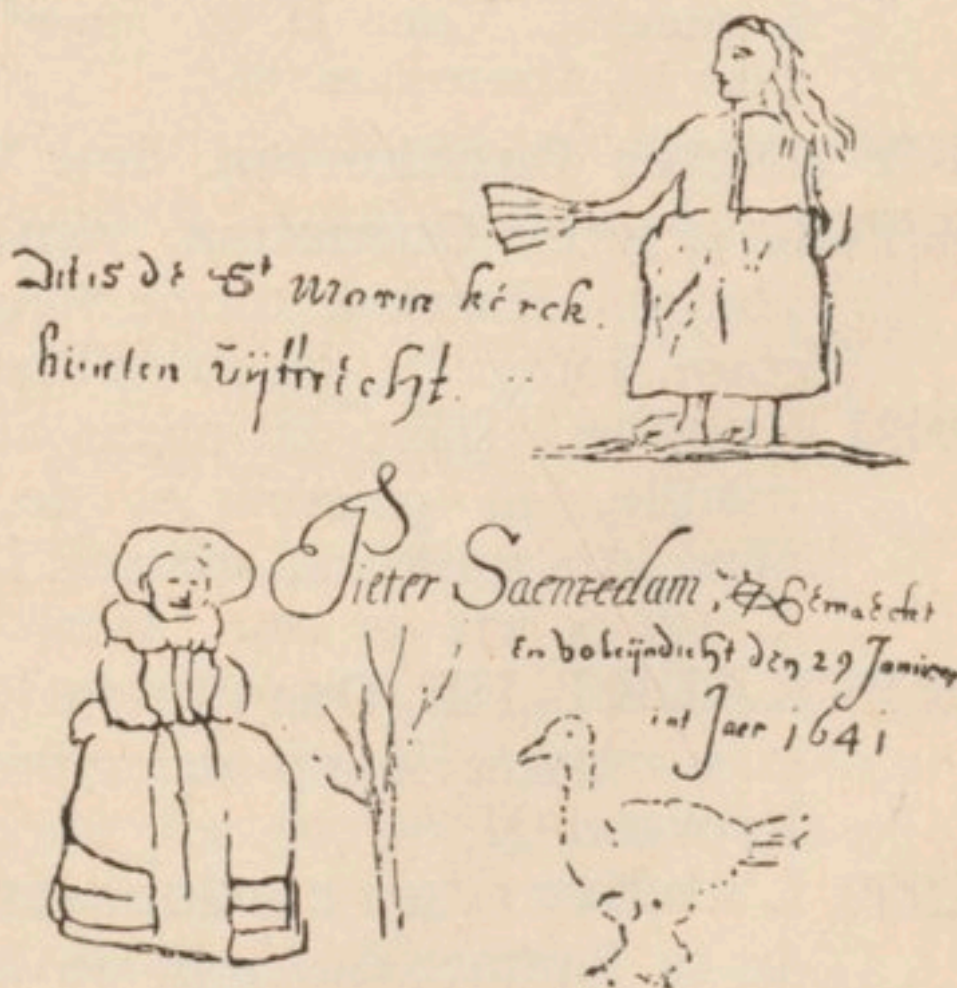 Dit is de St Maria kerck.
binnen uijttrecht.
Pieter Saenredam, gemaeckt
En voleijndicht den 29 Januier
int Jaer 1641